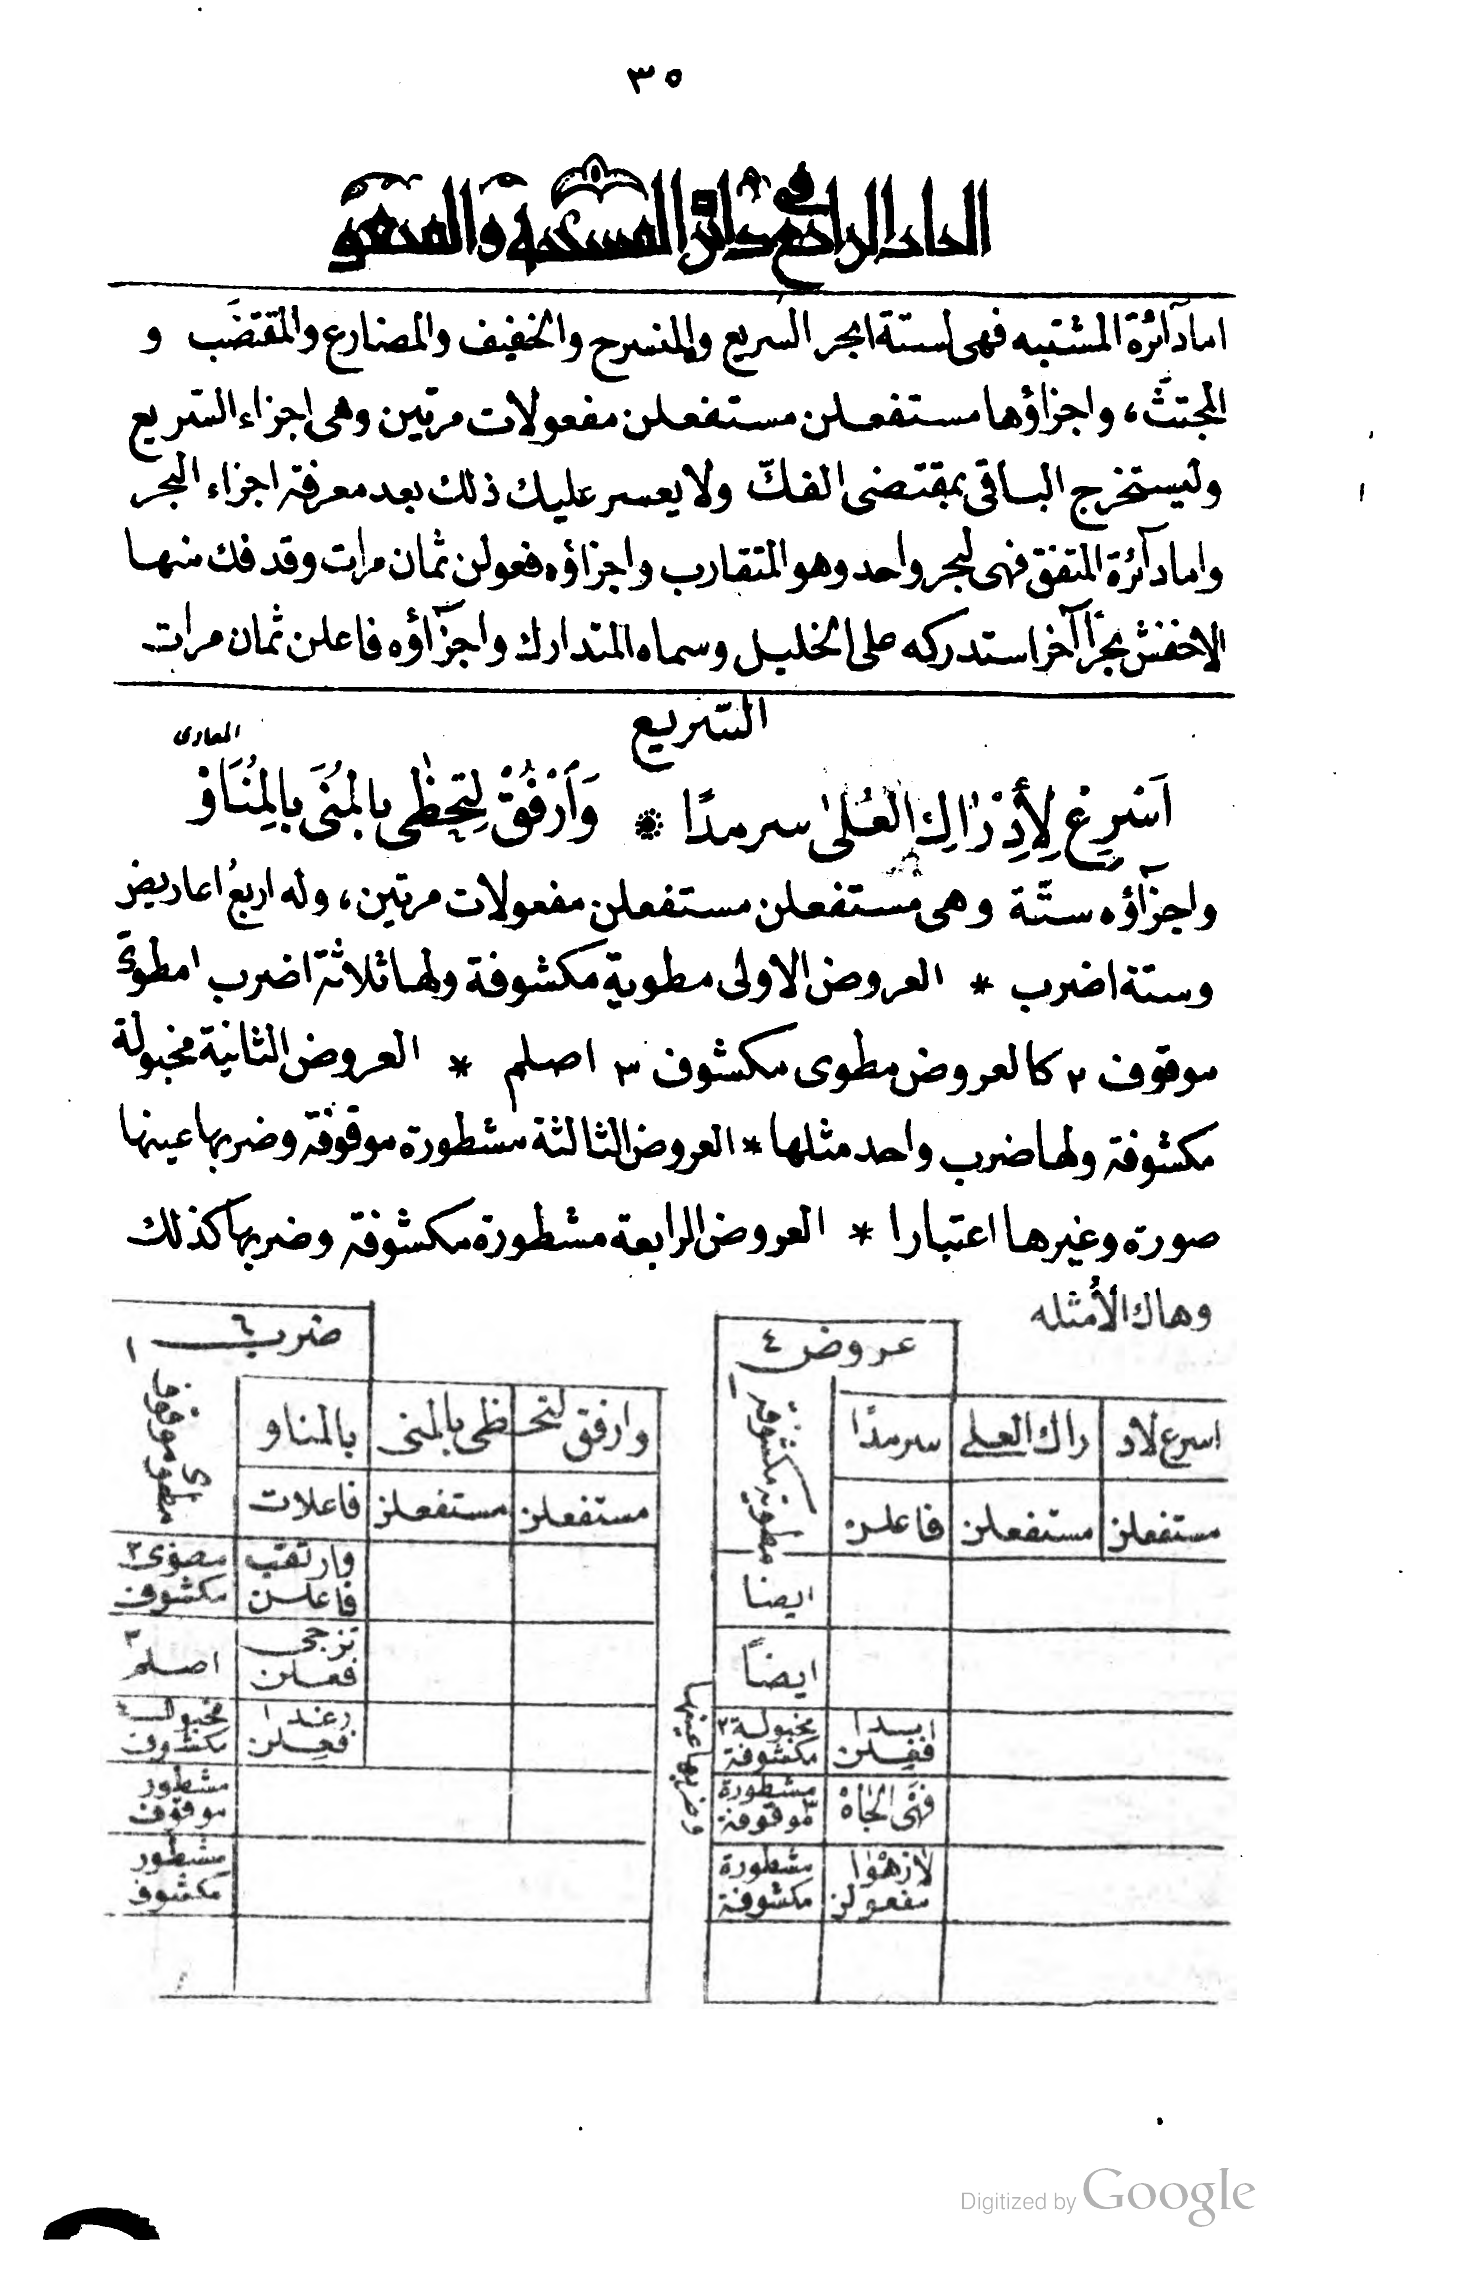 ٣٥
الباب الرابع في دائرة المشتبه والمتفق
اما دآئرة المشتبه فهى لستة ابحر السريع والمنسرح والخفيف والمضارع والمقتضَب و
المجتثّ، واجزاؤها مستفعلن مستفعلن مفعولات مرتين وهى اجزاء السّريع
وليستخرج الباقى بمقتضى الفكّ ولا يعسر عليك ذلك بعد معرفة اجزاء البحر
واما دآئرة المتفق فهى لبحر واحد وهو المتقارب واجزاؤه فعولن ثمان مرات وقد فك منها
الاخفش بحرًا آخر استدركه على الخليل وسماه المتدارك واجزآؤه فاعلن ثمان مرات
السّريع
اَسْرِعْ لِأِدْرَاكِ العُلىٰ سرمدًا * وَاَرْفُقْ لِتَحِظٰى بالمُنَى بالِمُنَاوْ
المعادى
واجزآؤه ستّة وهى مستفعلن مستفعلن مفعولات مرتين، وله اربعُ اعاريض
وستة اضرب * العروض الاولى مطوية مكشوفة ولها ثلاثة اضرب ١ مطوىّ
موقوف ٢ كالعروض مطوى مكشوف ٣ اصلم * العروض الثانية مخبولة
مكشوفة ولها ضرب واحد مثلها * العروض الثالثة مشطورة موقوفة وضربها عينها
صورة وغيرها اعتبارا * العروض الرابعة مشطورة مكشوفة وضربها كذلك
وهاك الأمثله
عروض ٤
اسرع لاد راك العلى سرمدًا مطوية مكشوفة ١
مستفعلن مستفعلن فاعلن
ايضا
ايضاً
ابدا مخبولة ٢
مكشوفة
مشطورة
فتى الجاهْ موقوفة ٣
لازهْوا مشطورة
مفعولن مكشوفة
وضربها عينها
ضرب ٦
وارفق لتحـ ـظى بالمنى بالمناو مطوى موقوف ١
مستفعلن مستفعلن فاعلات
وارتقب
فاعلن مكشوف
ترجى
فعلن اصلم ٣
رغدا مخبول ٤
فعلن مكشوف
مشطور
موقوف
مشطور
مكشوف
Digitized by Google